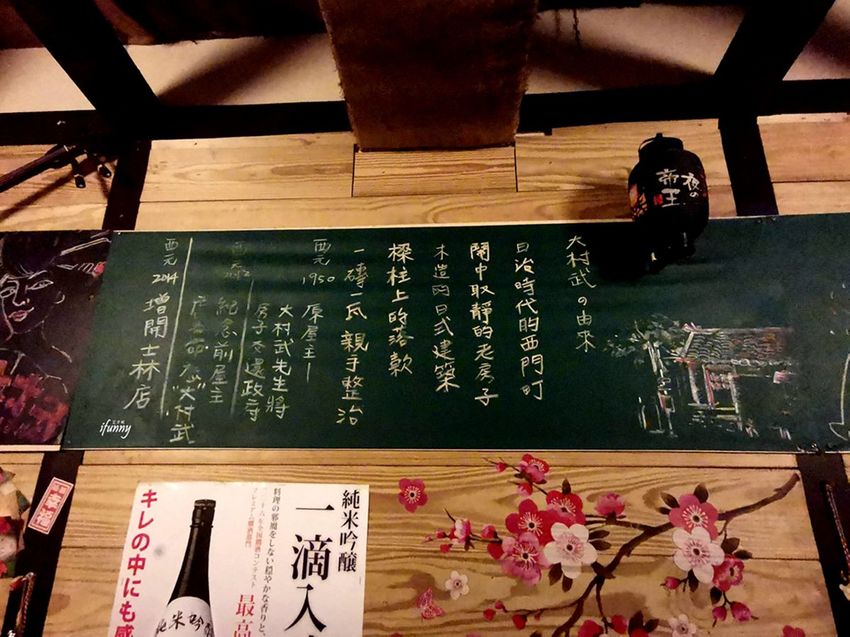 夜の
帝王
大村武の由來
日治時代的西門町
鬧中取靜的老房子
木造的日式建築
樑柱上的落款
一磚一瓦 親手整治
西元 1950 原屋主—
大村武先生將
房子歸還政府
西元
紀念前屋主
店名命為"大村武"
西元 2014 增開士林店
ifunny
純米吟醸
一滴入
料理の邪魔をしない穏やかな香りと、
最高
純米吟
キレの中にも感